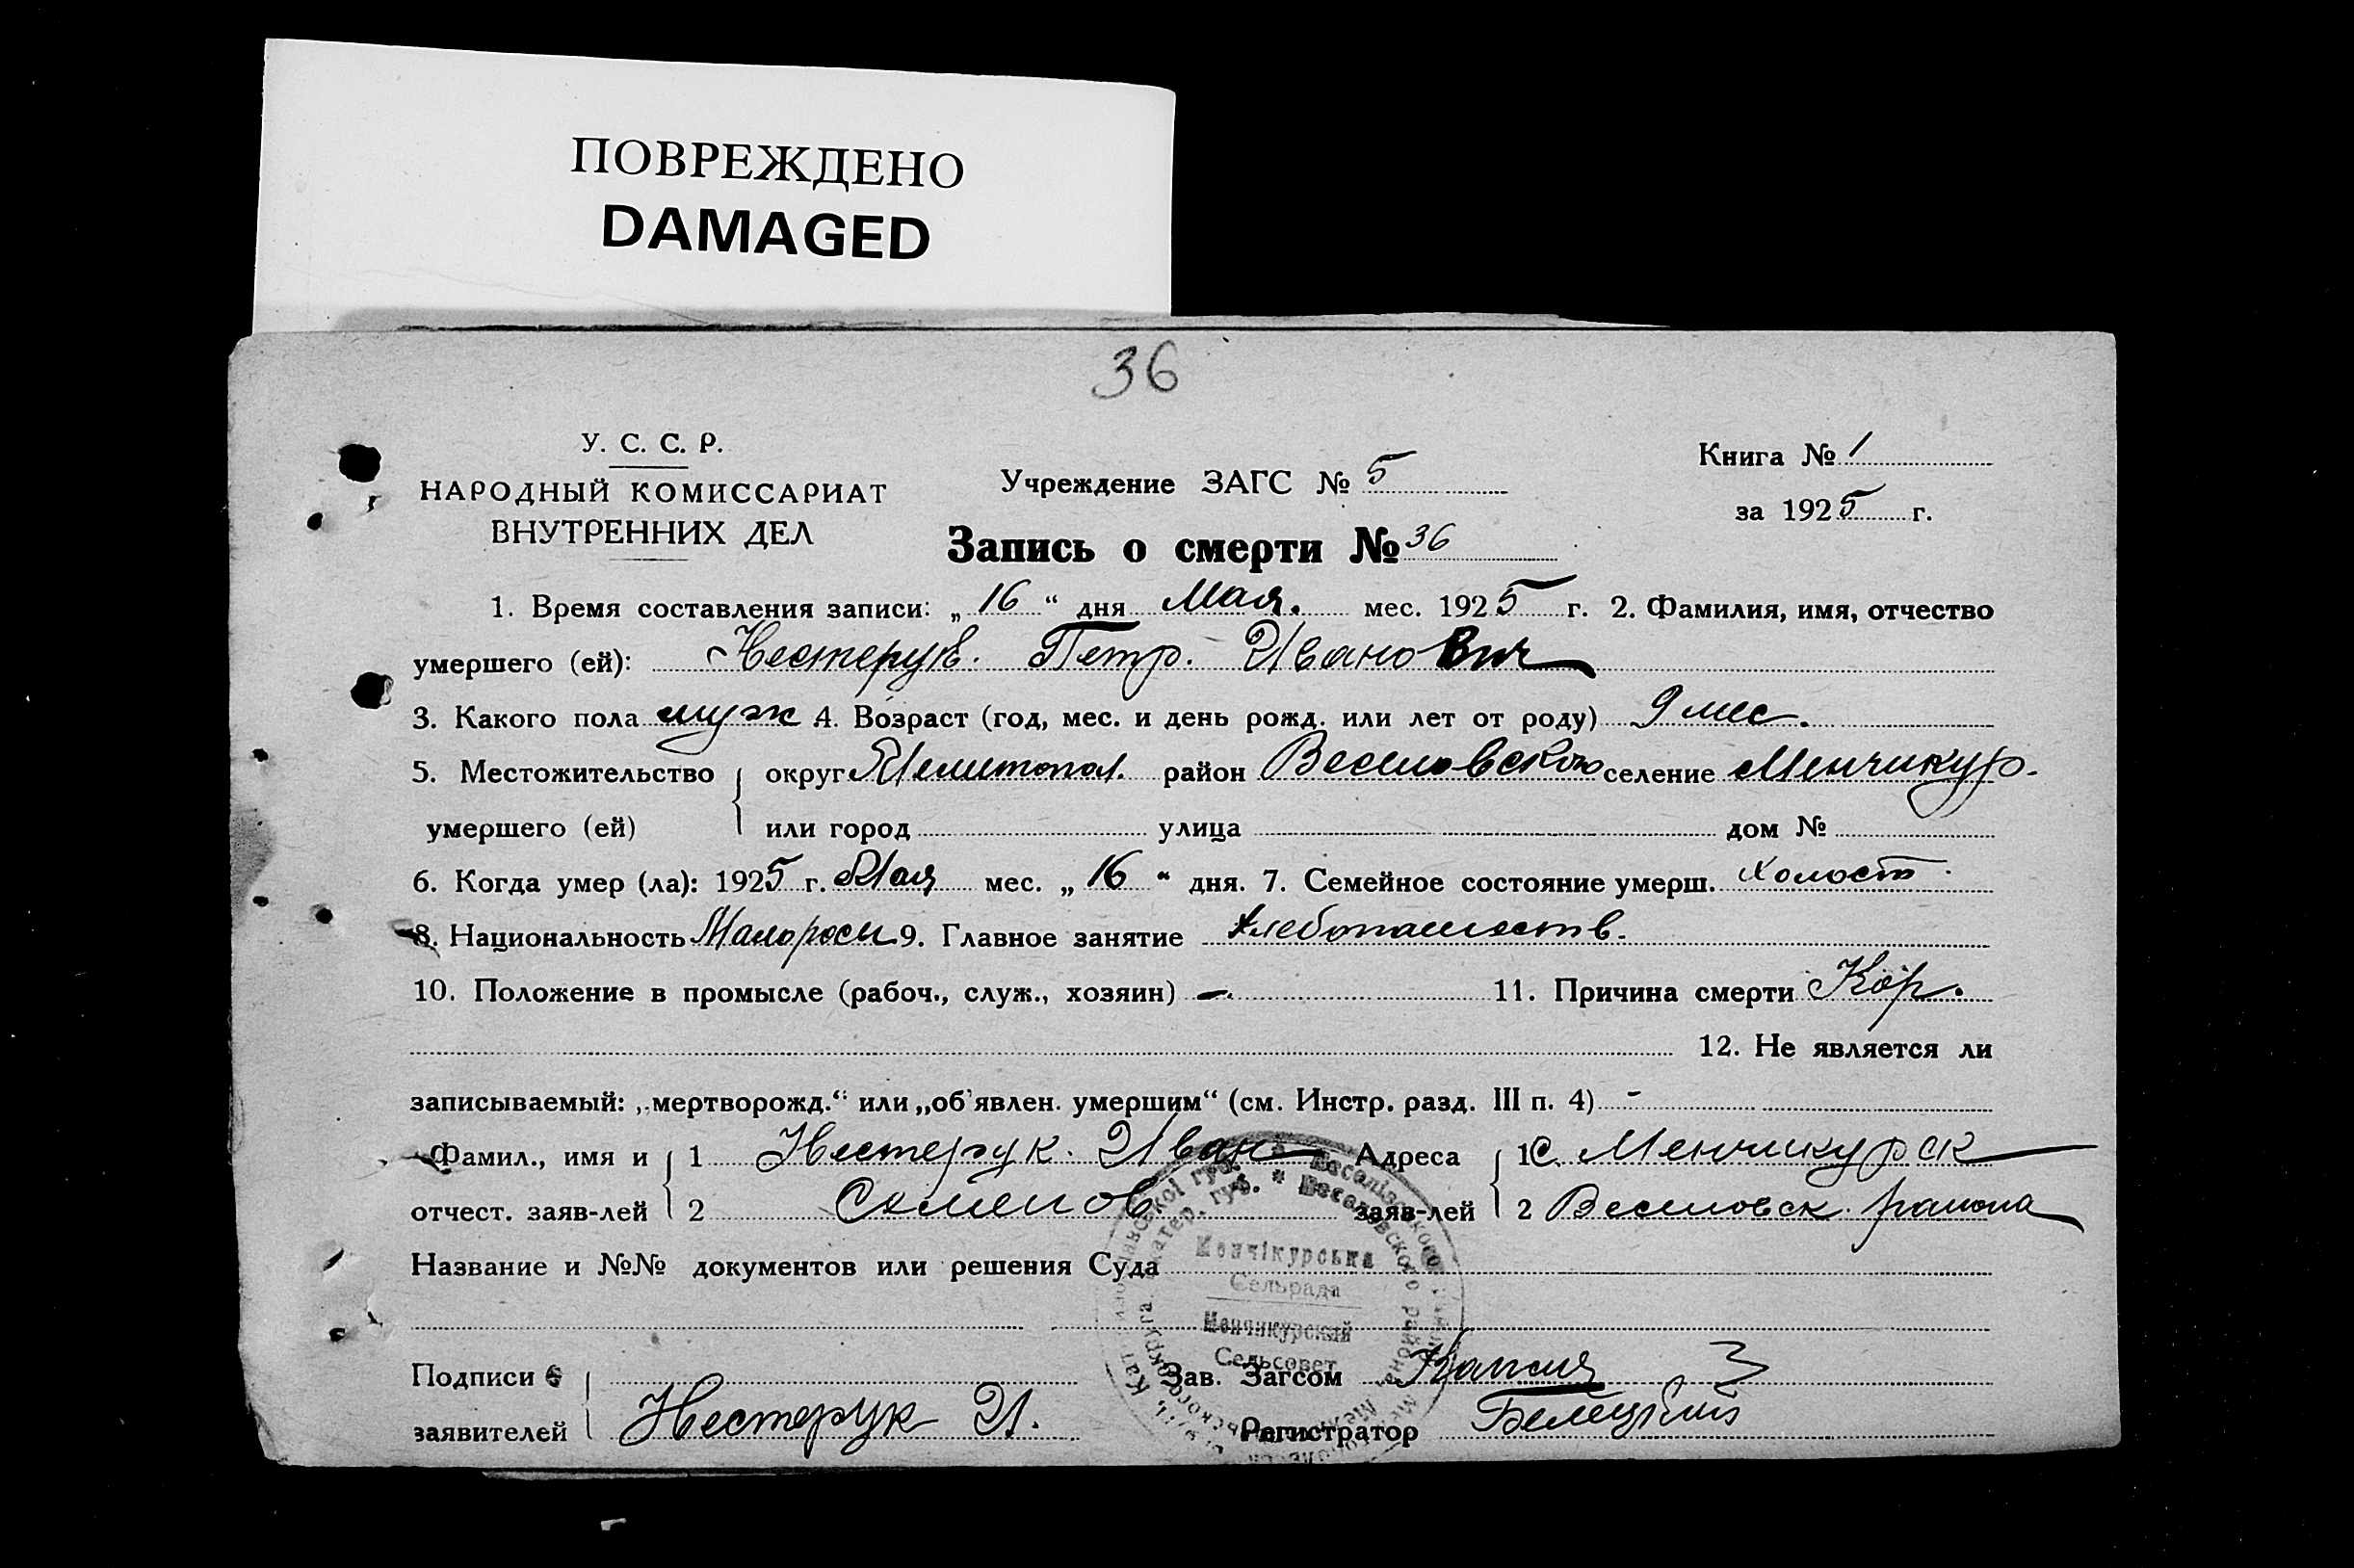 ПОВРЕЖДЕНО
DAMAGED
36
У. С. С. Р.
НАРОДНЫЙ КОМИССАРИАТ
ВНУТРЕННИХ ДЕЛ
Учреждение ЗАГС № 5
Книга № 1
за 1925 г.
Запись о смерти № 36
1. Время составления записи: „16“ дня Мая. мес. 1925 г. 2. Фамилия, имя, отчество
умершего (ей): Нестерук. Петр. Иванович
3. Какого пола муж 4. Возраст (год, мес. и день рожд. или лет от роду) 9 мес.
5. Местожительство округ Мелитопол. район Веселовского селение Менчикур.
умершего (ей) или город улица дом №
6. Когда умер (ла): 1925 г. Мая мес. „16“ дня. 7. Семейное состояние умерш. холост.
8. Национальность Малоросы 9. Главное занятие хлебопашеств.
10. Положение в промысле (рабоч., служ., хозяин) -. 11. Причина смерти Кор.
12. Не является ли
записываемый: „мертворожд.“ или „об'явлен. умершим“ (см. Инстр. разд. III п. 4) -
Фамил., имя и 1 Нестерук. Иван Адреса 1 С. Менчикурск
отчест. заяв-лей 2 Семенов заяв-лей 2 Веселовск. района
Название и №№ документов или решения Суда
Менчікурська
Сельрада
Менчикурский
Сельсовет
Подписи Зав. Загсом
заявителей Нестерук И. Регистратор Белецкий